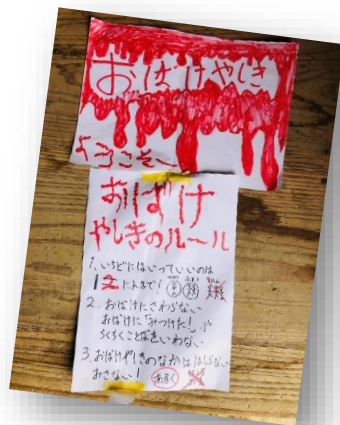 おばけやしき
ようこそ〜
おばけ
やしきのルール
1. いちどにはいっていいのは
2にんまで!
2. おばけにさわらない
おばけに「みつけた!」や
ちくちくことばをいわない
3. おばけやしきのなかははしらない
おさない!
あるく